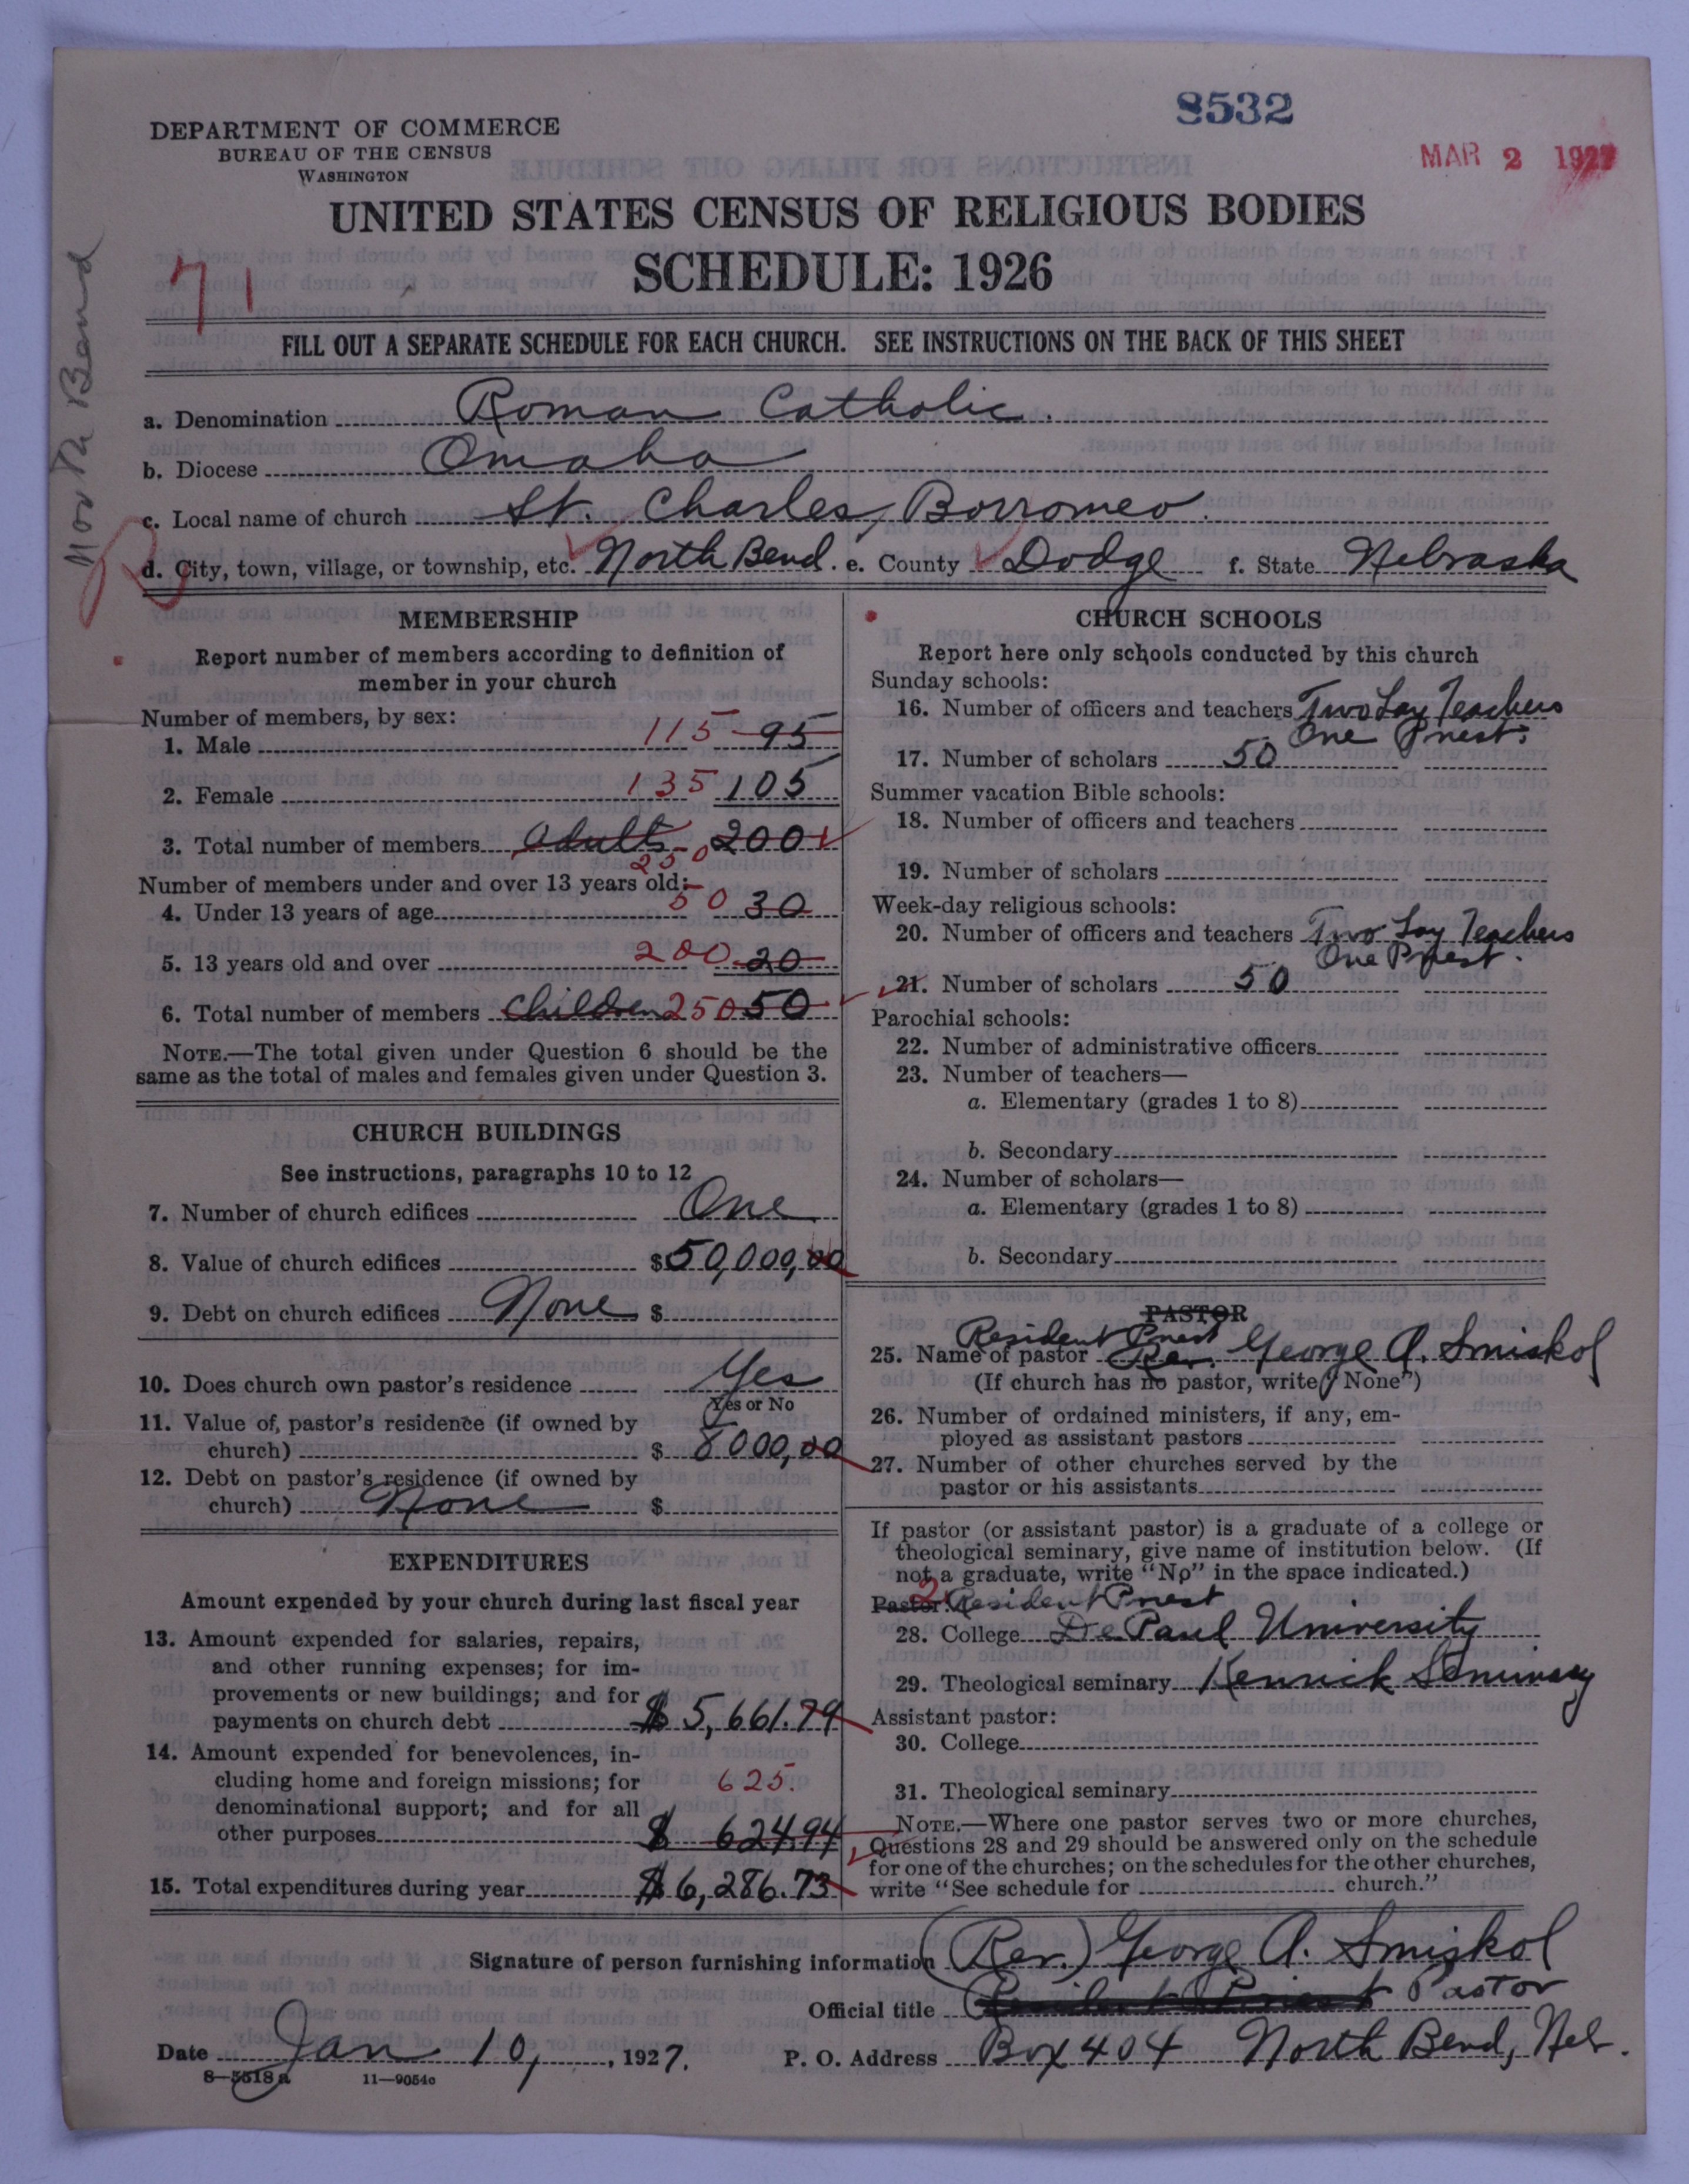 8532
MAR 2 1927
DEPARTMENT OF COMMERCE
BUREAU OF THE CENSUS
WASHINGTON
UNITED STATES CENSUS OF RELIGIOUS BODIES
SCHEDULE: 1926
71
North Bend
FILL OUT A SEPARATE SCHEDULE FOR EACH CHURCH. SEE INSTRUCTIONS ON THE BACK OF THIS SHEET
a. Denomination Roman Catholic.
b. Diocese Omaha
c. Local name of church St. Charles, Borromeo.
d. City, town, village, or township, etc. North Bend. e. County Dodge f. State Nebraska
MEMBERSHIP
Report number of members according to definition of
member in your church
Number of members, by sex:
1. Male 115 95
2. Female 135 105
3. Total number of members Adults - 200
250
Number of members under and over 13 years old:
4. Under 13 years of age 50 30
5. 13 years old and over 200 20
6. Total number of members Children 250 50
NOTE.—The total given under Question 6 should be the
same as the total of males and females given under Question 3.
CHURCH BUILDINGS
See instructions, paragraphs 10 to 12
7. Number of church edifices One
8. Value of church edifices $50,000,00
9. Debt on church edifices None $
10. Does church own pastor's residence Yes
Yes or No
11. Value of pastor's residence (if owned by
church) $ 8000,00
12. Debt on pastor's residence (if owned by
church) None $
EXPENDITURES
Amount expended by your church during last fiscal year
13. Amount expended for salaries, repairs,
and other running expenses; for im-
provements or new buildings; and for
payments on church debt $ 5,661.79
14. Amount expended for benevolences, in-
cluding home and foreign missions; for 625.
denominational support; and for all
other purposes $ 624.94
15. Total expenditures during year $6,286.73
CHURCH SCHOOLS
Report here only schools conducted by this church
Sunday schools:
16. Number of officers and teachers Two Lay Teachers
One Priest.
17. Number of scholars 50
Summer vacation Bible schools:
18. Number of officers and teachers
19. Number of scholars
Week-day religious schools:
20. Number of officers and teachers Two Lay Teachers
One Priest.
21. Number of scholars 50
Parochial schools:
22. Number of administrative officers
23. Number of teachers—
a. Elementary (grades 1 to 8)
b. Secondary
24. Number of scholars—
a. Elementary (grades 1 to 8)
b. Secondary
PASTOR
Resident Priest
25. Name of pastor Rev. George A. Smiskol
(If church has no pastor, write "None")
26. Number of ordained ministers, if any, em-
ployed as assistant pastors
27. Number of other churches served by the
pastor or his assistants
If pastor (or assistant pastor) is a graduate of a college or
theological seminary, give name of institution below. (If
not a graduate, write "No" in the space indicated.)
2
Pastor: Resident Priest
28. College De Paul University
29. Theological seminary Kenrick Seminary
Assistant pastor:
30. College
31. Theological seminary
NOTE.—Where one pastor serves two or more churches,
Questions 28 and 29 should be answered only on the schedule
for one of the churches; on the schedules for the other churches,
write "See schedule for church."
Signature of person furnishing information (Rev.) George A. Smiskol
Official title (Resident Priest Pastor
Date Jan 10, , 1927. P. O. Address Box 404 North Bend, Neb.
8—5518 a 11—9054c